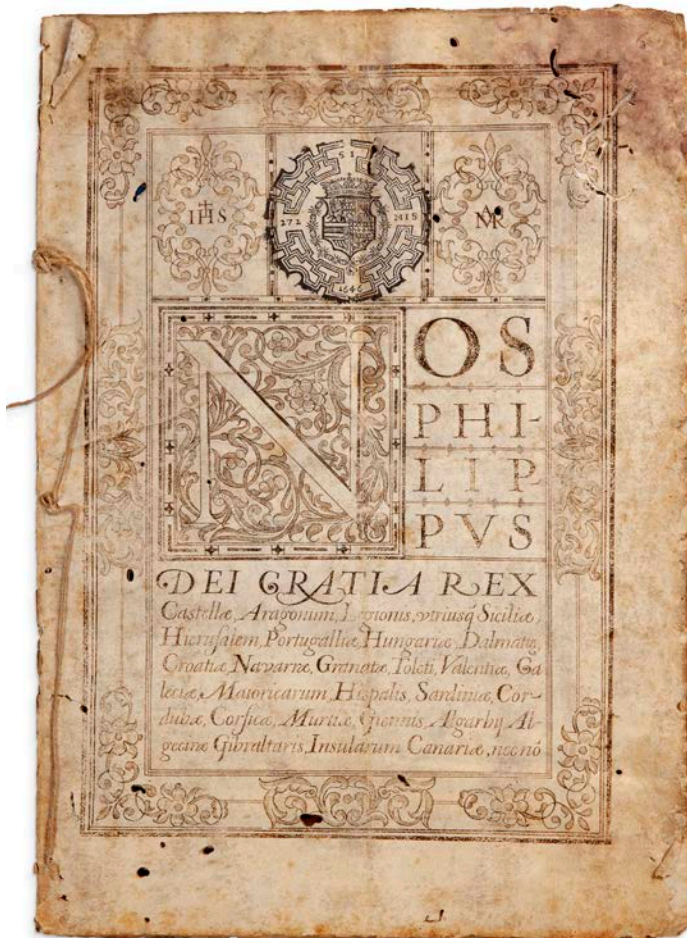 IHS
51
272
MIS
1646
MAR
NOS
PHI-
LIP
PVS
DEI GRATIA REX
Castellæ, Aragonum, Legionis, vtriusq́ Siciliæ,
Hierusalem, Portugalliæ, Hungariæ, Dalmatiæ
Croatiæ, Navarræ, Granatæ, Toleti, Valentiæ, Ga
leciæ, Maioricarum, Hispalis, Sardiniæ, Cor-
dubæ, Corsicæ, Murtiæ, Giennis, Algarbij Al-
geciræ Gibraltaris, Insularum Canariæ, necnõ